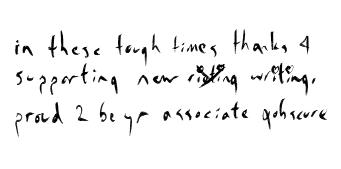 in these tough times thanks 4
supporting new writing.
proud 2 be yr associate